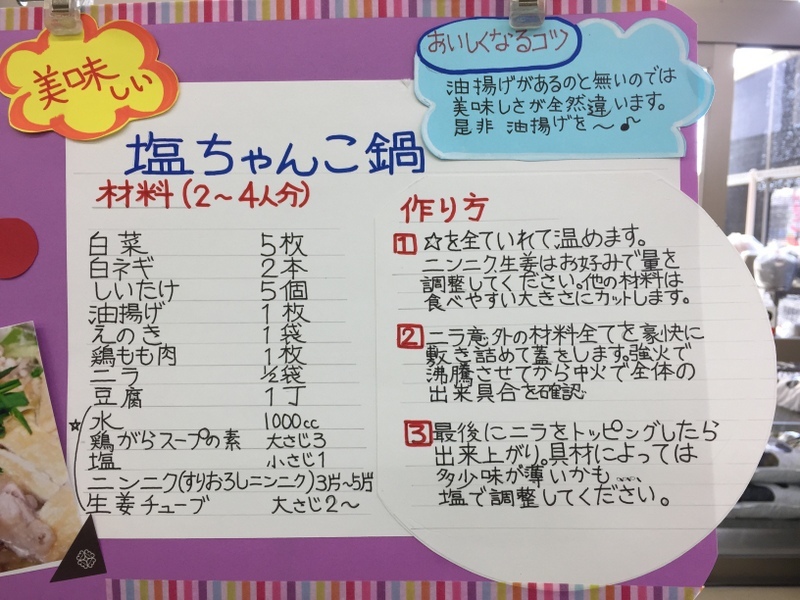 美味しい
おいしくなるコツ
油揚げがあるのと無いのでは
美味しさが全然違います。
是非 油揚げを〜♪
塩ちゃんこ鍋
材料(2〜4人分)
白菜 5枚
白ネギ 2本
しいたけ 5個
油揚げ 1枚
えのき 1袋
鶏もも肉 1枚
ニラ ½袋
豆腐 1丁
☆
水 1000cc
鶏がらスープの素 大さじ3
塩 小さじ1
ニンニク(すりおろしニンニク)3片〜5片
生姜チューブ 大さじ2〜
作り方
1 ☆を全ていれて温めます。
ニンニク生姜はお好みで量を
調整してください。他の材料は
食べやすい大きさにカットします。
2 ニラ意外の材料全てを豪快に
敷き詰めて蓋をします。強火で
沸騰させてから中火で全体の
出来具合を確認
3 最後にニラをトッピングしたら
出来上がり。具材によっては
多少味が薄いかも……
塩で調整してください。